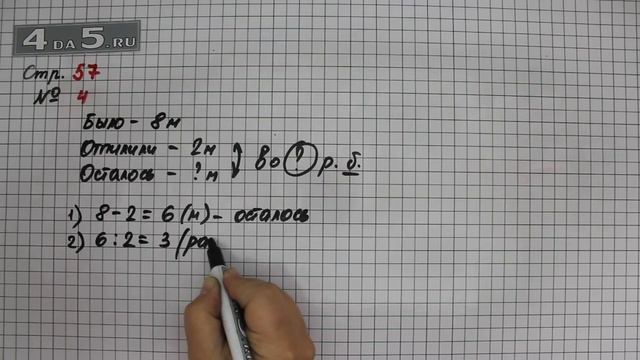 4DA5.RU
Стр. 57
№ 4
Было - 8м
Отпилили - 2м
Осталось - ? м
во ? р. б.
1) 8 - 2 = 6 (м) - осталось
2) 6 : 2 = 3 (ра